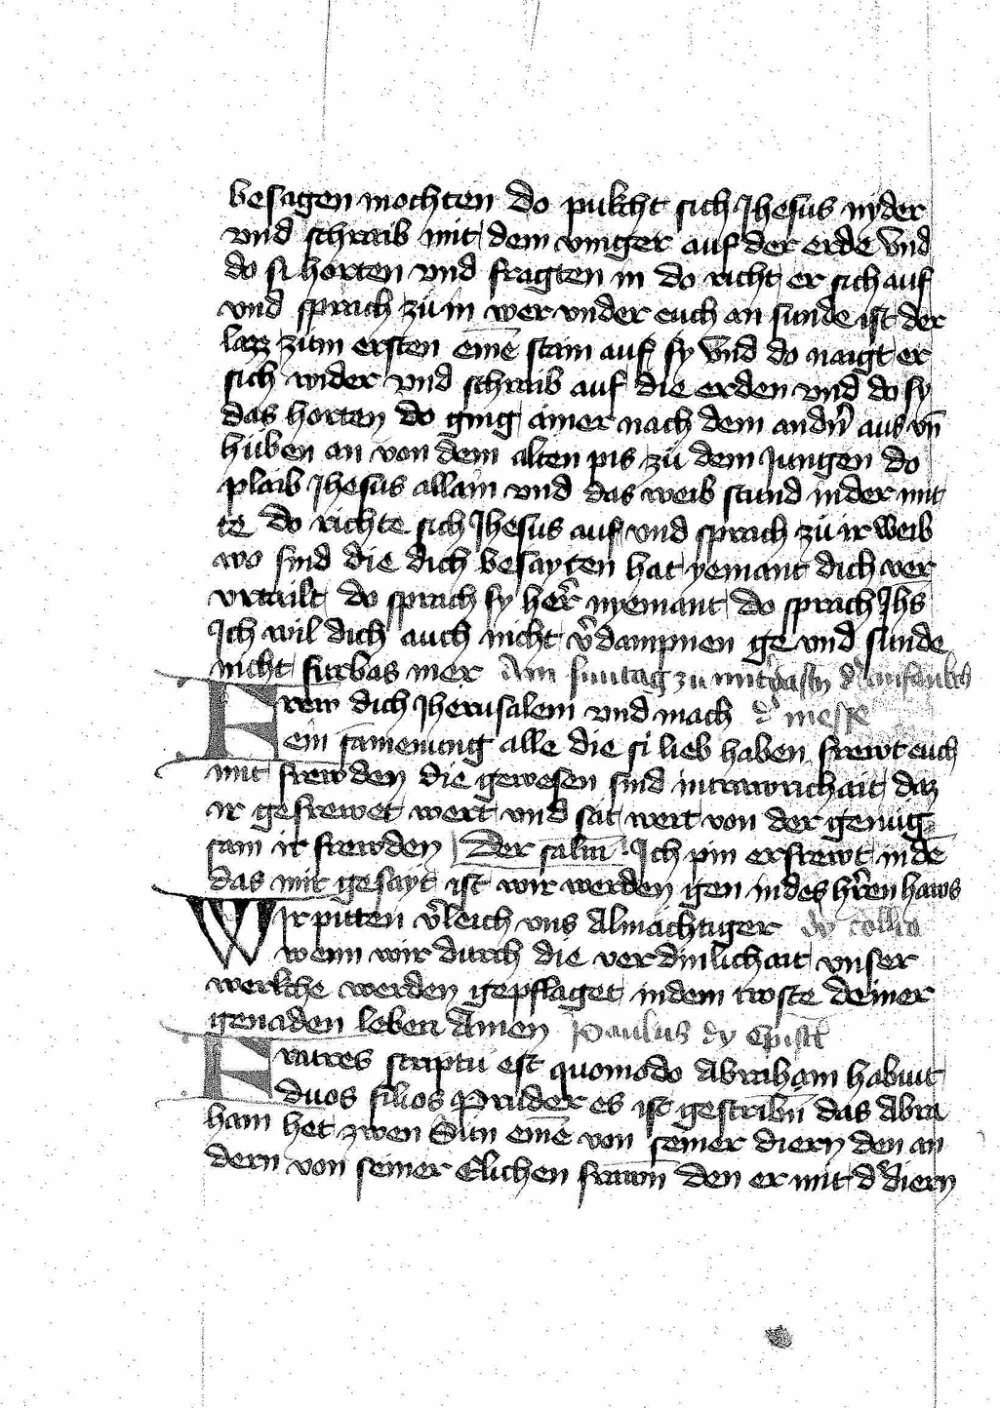 besagen mochten do pukcht sich Jhesus nyder
vnd schraib mit dem vinger auf der erde Vnd
do si horten vnd fragten in do richt er sich auf
vnd sprach zu in wer vnder euch an sunde ist der
lazz zum ersten einē stain auf sy Vnd do naigt er
sich wider vnd schraib auf die erden vnd do sy
das horten do ging ainer nach dem andn̄ aus vn̄
huben an von dem alten pis zu dem Jungen do
plaib Jhesus allain vnd das weib stund in der mit
te do richte sich Jhesus auf vnd sprach zu ir weib
wo sind die dich besayten hat yemant dich ver
vrtailt do sprach sy her̄ nyemant do sprach Jhs
Ich wil dich auch nicht v̄dampnen ge vnd sunde
nicht furbas mer Am suntag zu mit
Frew dich Jherusalem vnd mach d' messe
ein samenung alle die si lieb haben frewt euch
mit frewden die gewesen sind in trawrichait daz
ir gefrewet wert vnd sat wert von der genug
sam ir frewden Der salm Ich pin erfrewt in dē
das mir gesayt ist wir werden gen in des hr̄en haws
Wir pitten v̄leich vns Almachtiger dy coll̄a
wenn wir durch die verdinlichait vnser
werkche werden gepflaget in dem troste deiner
genaden leben Amen Paulus dy Epistl
Fratres scriptū est quomodo Abraham habuit
duos filios Pruder es ist gescribn̄ das Abra
ham het zwen Sun einē von seiner diern den an
dern von seiner Elichen frawn den er mit d' diern